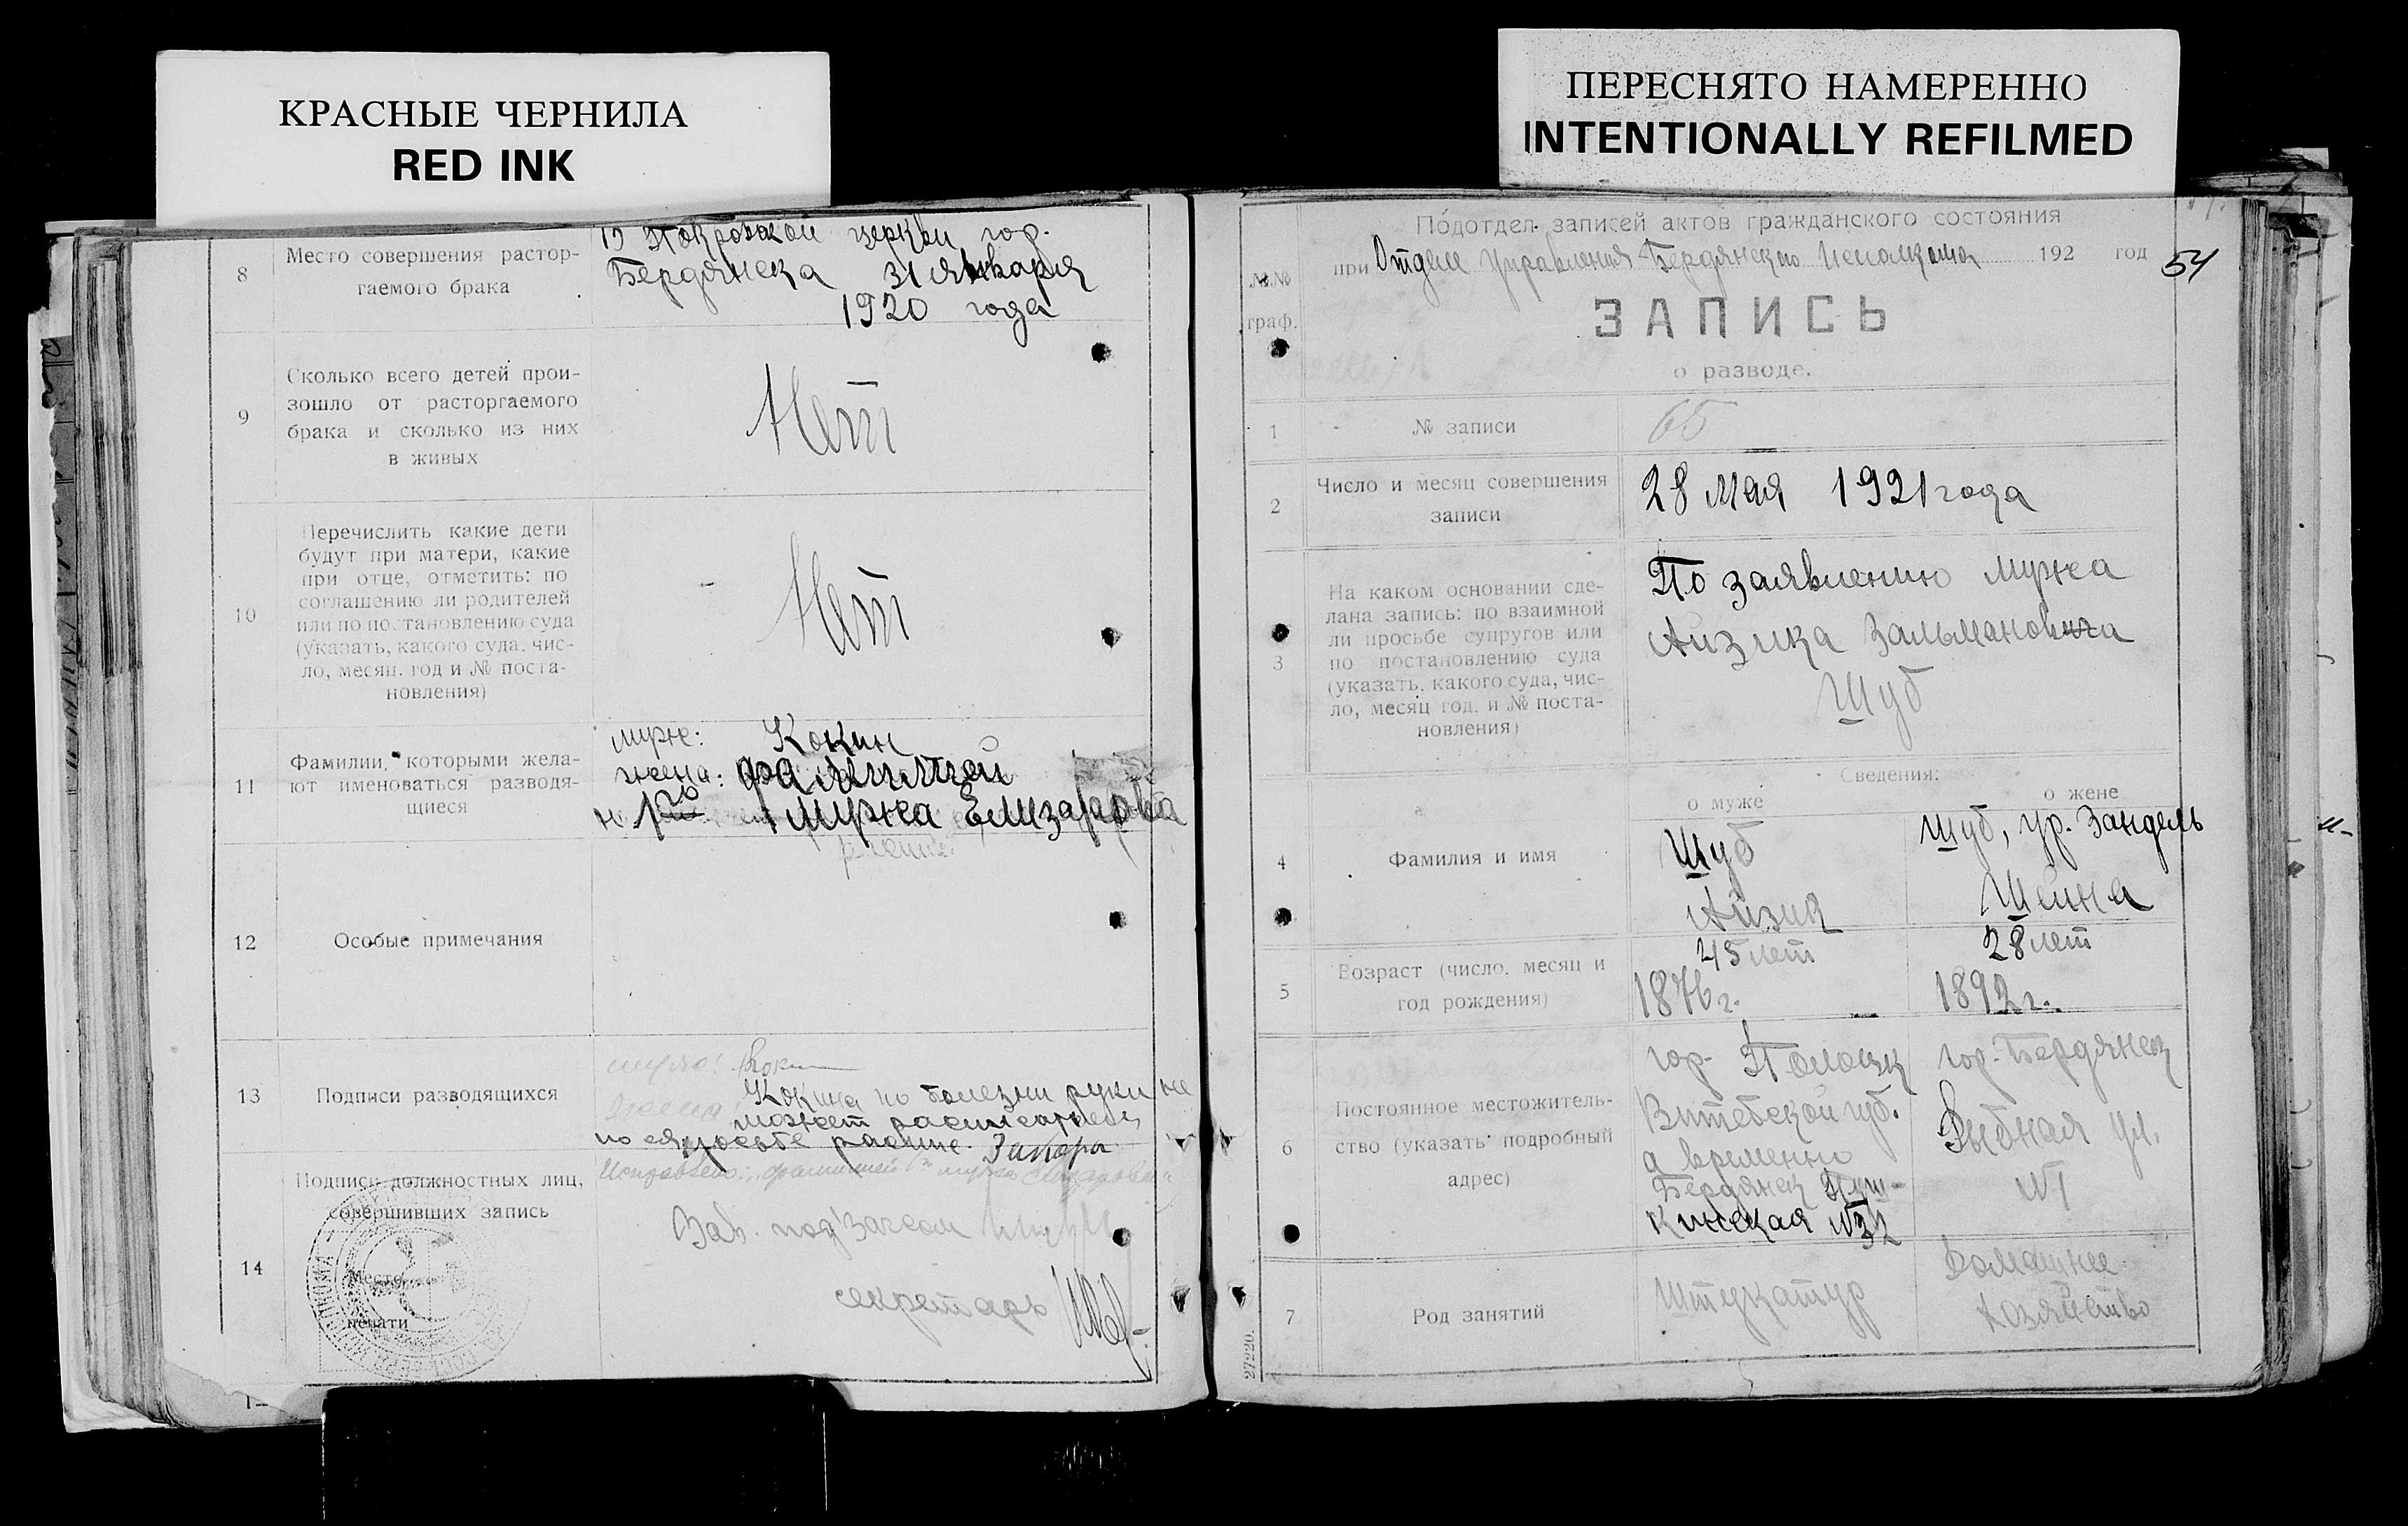 КРАСНЫЕ ЧЕРНИЛА
RED INK
ПЕРЕСНЯТО НАМЕРЕННО
INTENTIONALLY REFILMED
8
Место совершения растор-
гаемого брака
В Покровской церкви гор.
Бердянска 31 января
1920 года
9
Сколько всего детей прои-
зошло от расторгаемого
брака и сколько из них
в живых
Нет
10
Перечислить какие дети
будут при матери, какие
при отце, отметить: по
соглашению ли родителей
или по постановлению суда
(указать, какого суда, чис-
ло, месяц, год и № поста-
новления)
Нет
11
Фамилии, которыми жела-
ют именоваться разводя-
щиеся
муж: Кокин
жена: фамилией
мужа Елизарова
12
Особые примечания
13
Подписи разводящихся
Кокина по болезни руки не
может расписаться
по ея просьбе распис.
14
Подписи должностных лиц,
совершивших запись
Место
печати
Исправлено: "фамилией мужа Елизарова"
Зав. под
секретарь
Подотдел записей актов гражданского состояния
при Отделе Управления Бердянского Исполкома 192 год
54
№№
граф.
ЗАПИСЬ
о разводе.
1
№ записи
65
2
Число и месяц совершения
записи
28 мая 1921 года
3
На каком основании сде-
лана запись: по взаимной
ли просьбе супругов или
по постановлению суда
(указать, какого суда, чис-
ло, месяц год, и № поста-
новления)
По заявлению мужа
Айзика Зальмановича
Шуб
Сведения:
о муже
о жене
4
Фамилия и имя
Шуб
Айзик
Шуб, ур. Зандель
Шейна
5
Возраст (число, месяц и
год рождения)
45 лет
1876 г.
28 лет
1892 г.
6
Постоянное местожитель-
ство (указать подробный
адрес)
гор. Полоцк
Витебской губ.
а временно
Бердянск Пуш-
кинская №32
гор. Бердянск
Рыбная ул.
№1
7
Род занятий
Штукатур
Домашнее
хозяйство
27220.